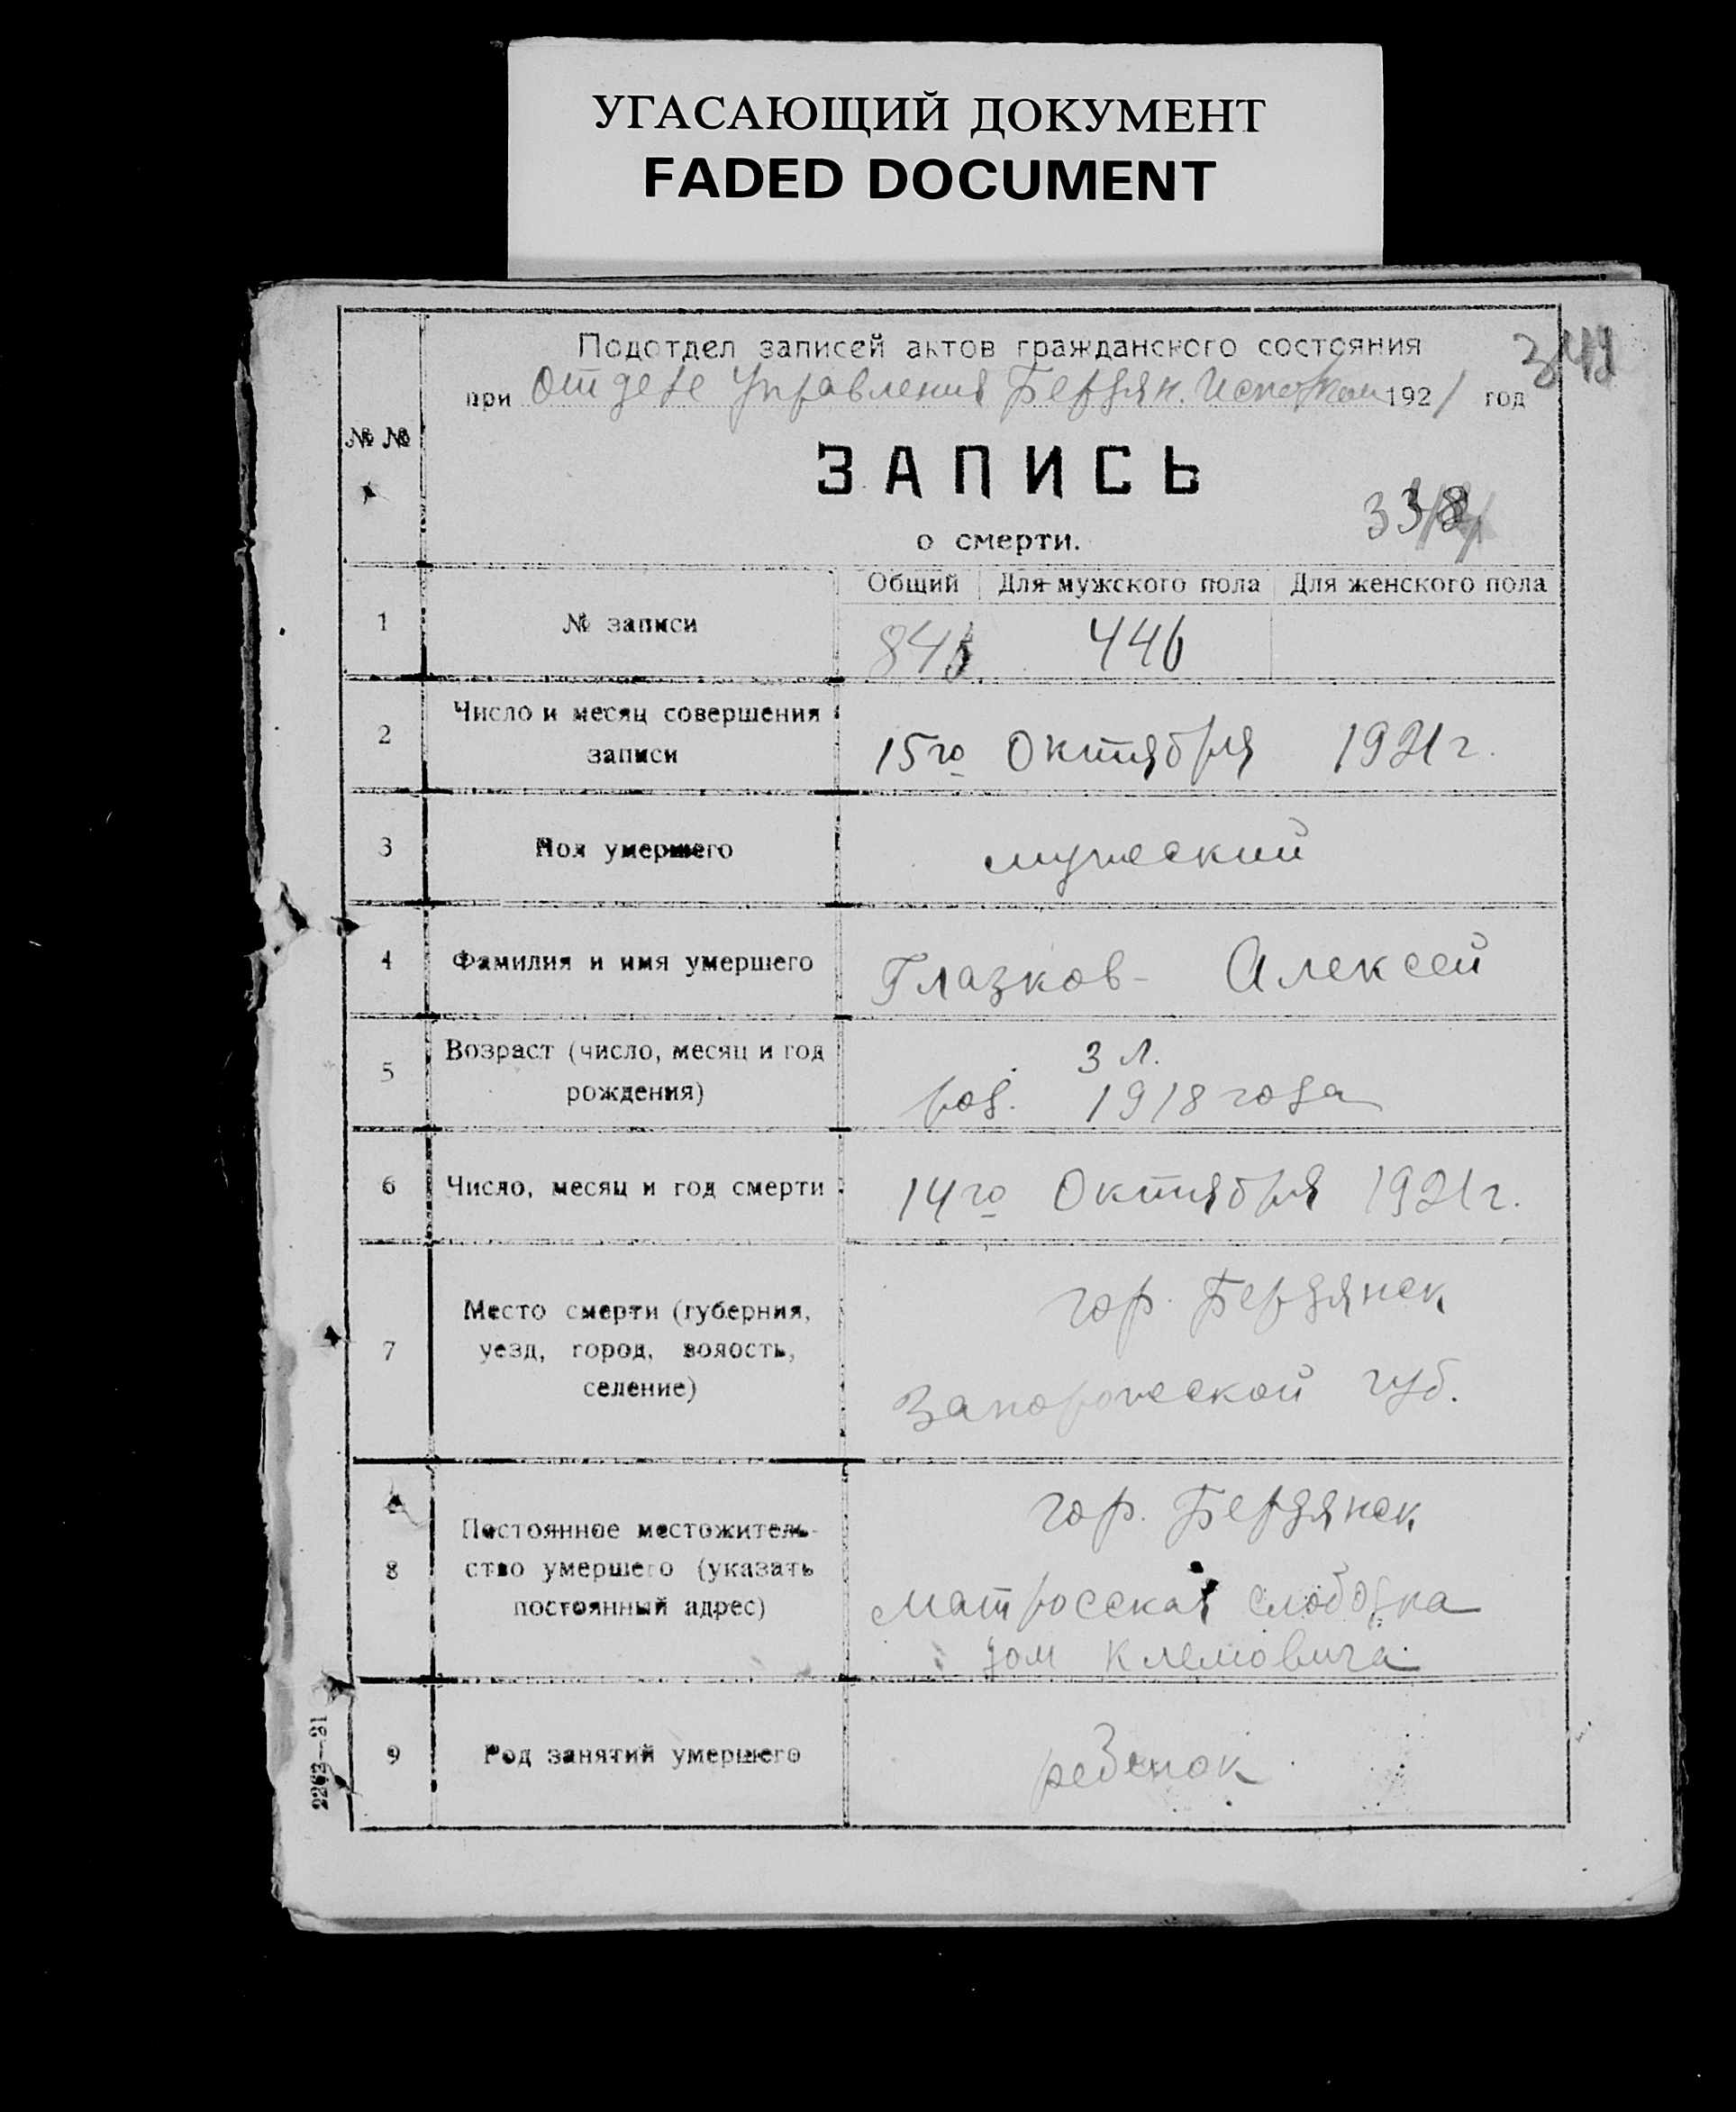 УГАСАЮЩИЙ ДОКУМЕНТ
FADED DOCUMENT
Подотдел записей актов гражданского состояния
при Отделе Управления Бердян. Исполкома 1921 год
№ №
ЗАПИСЬ
338
о смерти.
Общий Для мужского пола Для женского пола
1 № записи 845 446
2 Число и месяц совершения
записи
15го Октября 1921 г.
3 Пол умершего мужеский
4 Фамилия и имя умершего Глазков - Алексей
5 Возраст (число, месяц и год
рождения)
3 л.
род. 1918 года
6 Число, месяц и год смерти 14го Октября 1921 г.
7 Место смерти (губерния,
уезд, город, волость,
селение)
гор. Бердянск
Запорожеской губ.
8 Постоянное местожитель-
ство умершего (указать
постоянный адрес)
гор. Бердянск
матросская слободка
дом Клемовича
9 Род занятий умершего ребенок
2262—21